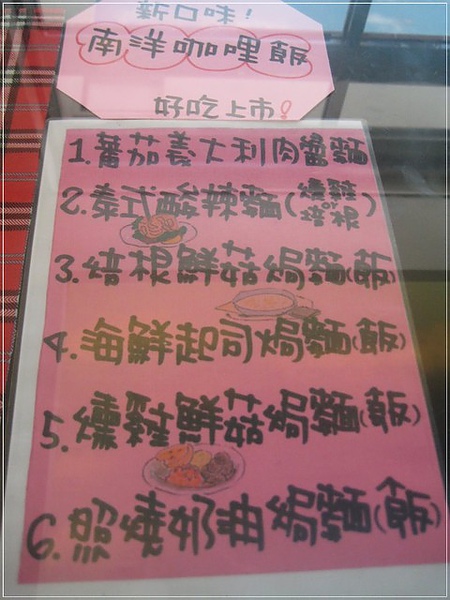 新口味!
南洋咖哩飯
好吃上市!
1.蕃茄義大利肉醬麵
2.泰式酸辣麵(燻雞or培根)
3.培根鮮菇焗麵(飯)
4.海鮮起司焗麵(飯)
5.燻雞鮮菇焗麵(飯)
6.照燒奶油焗麵(飯)